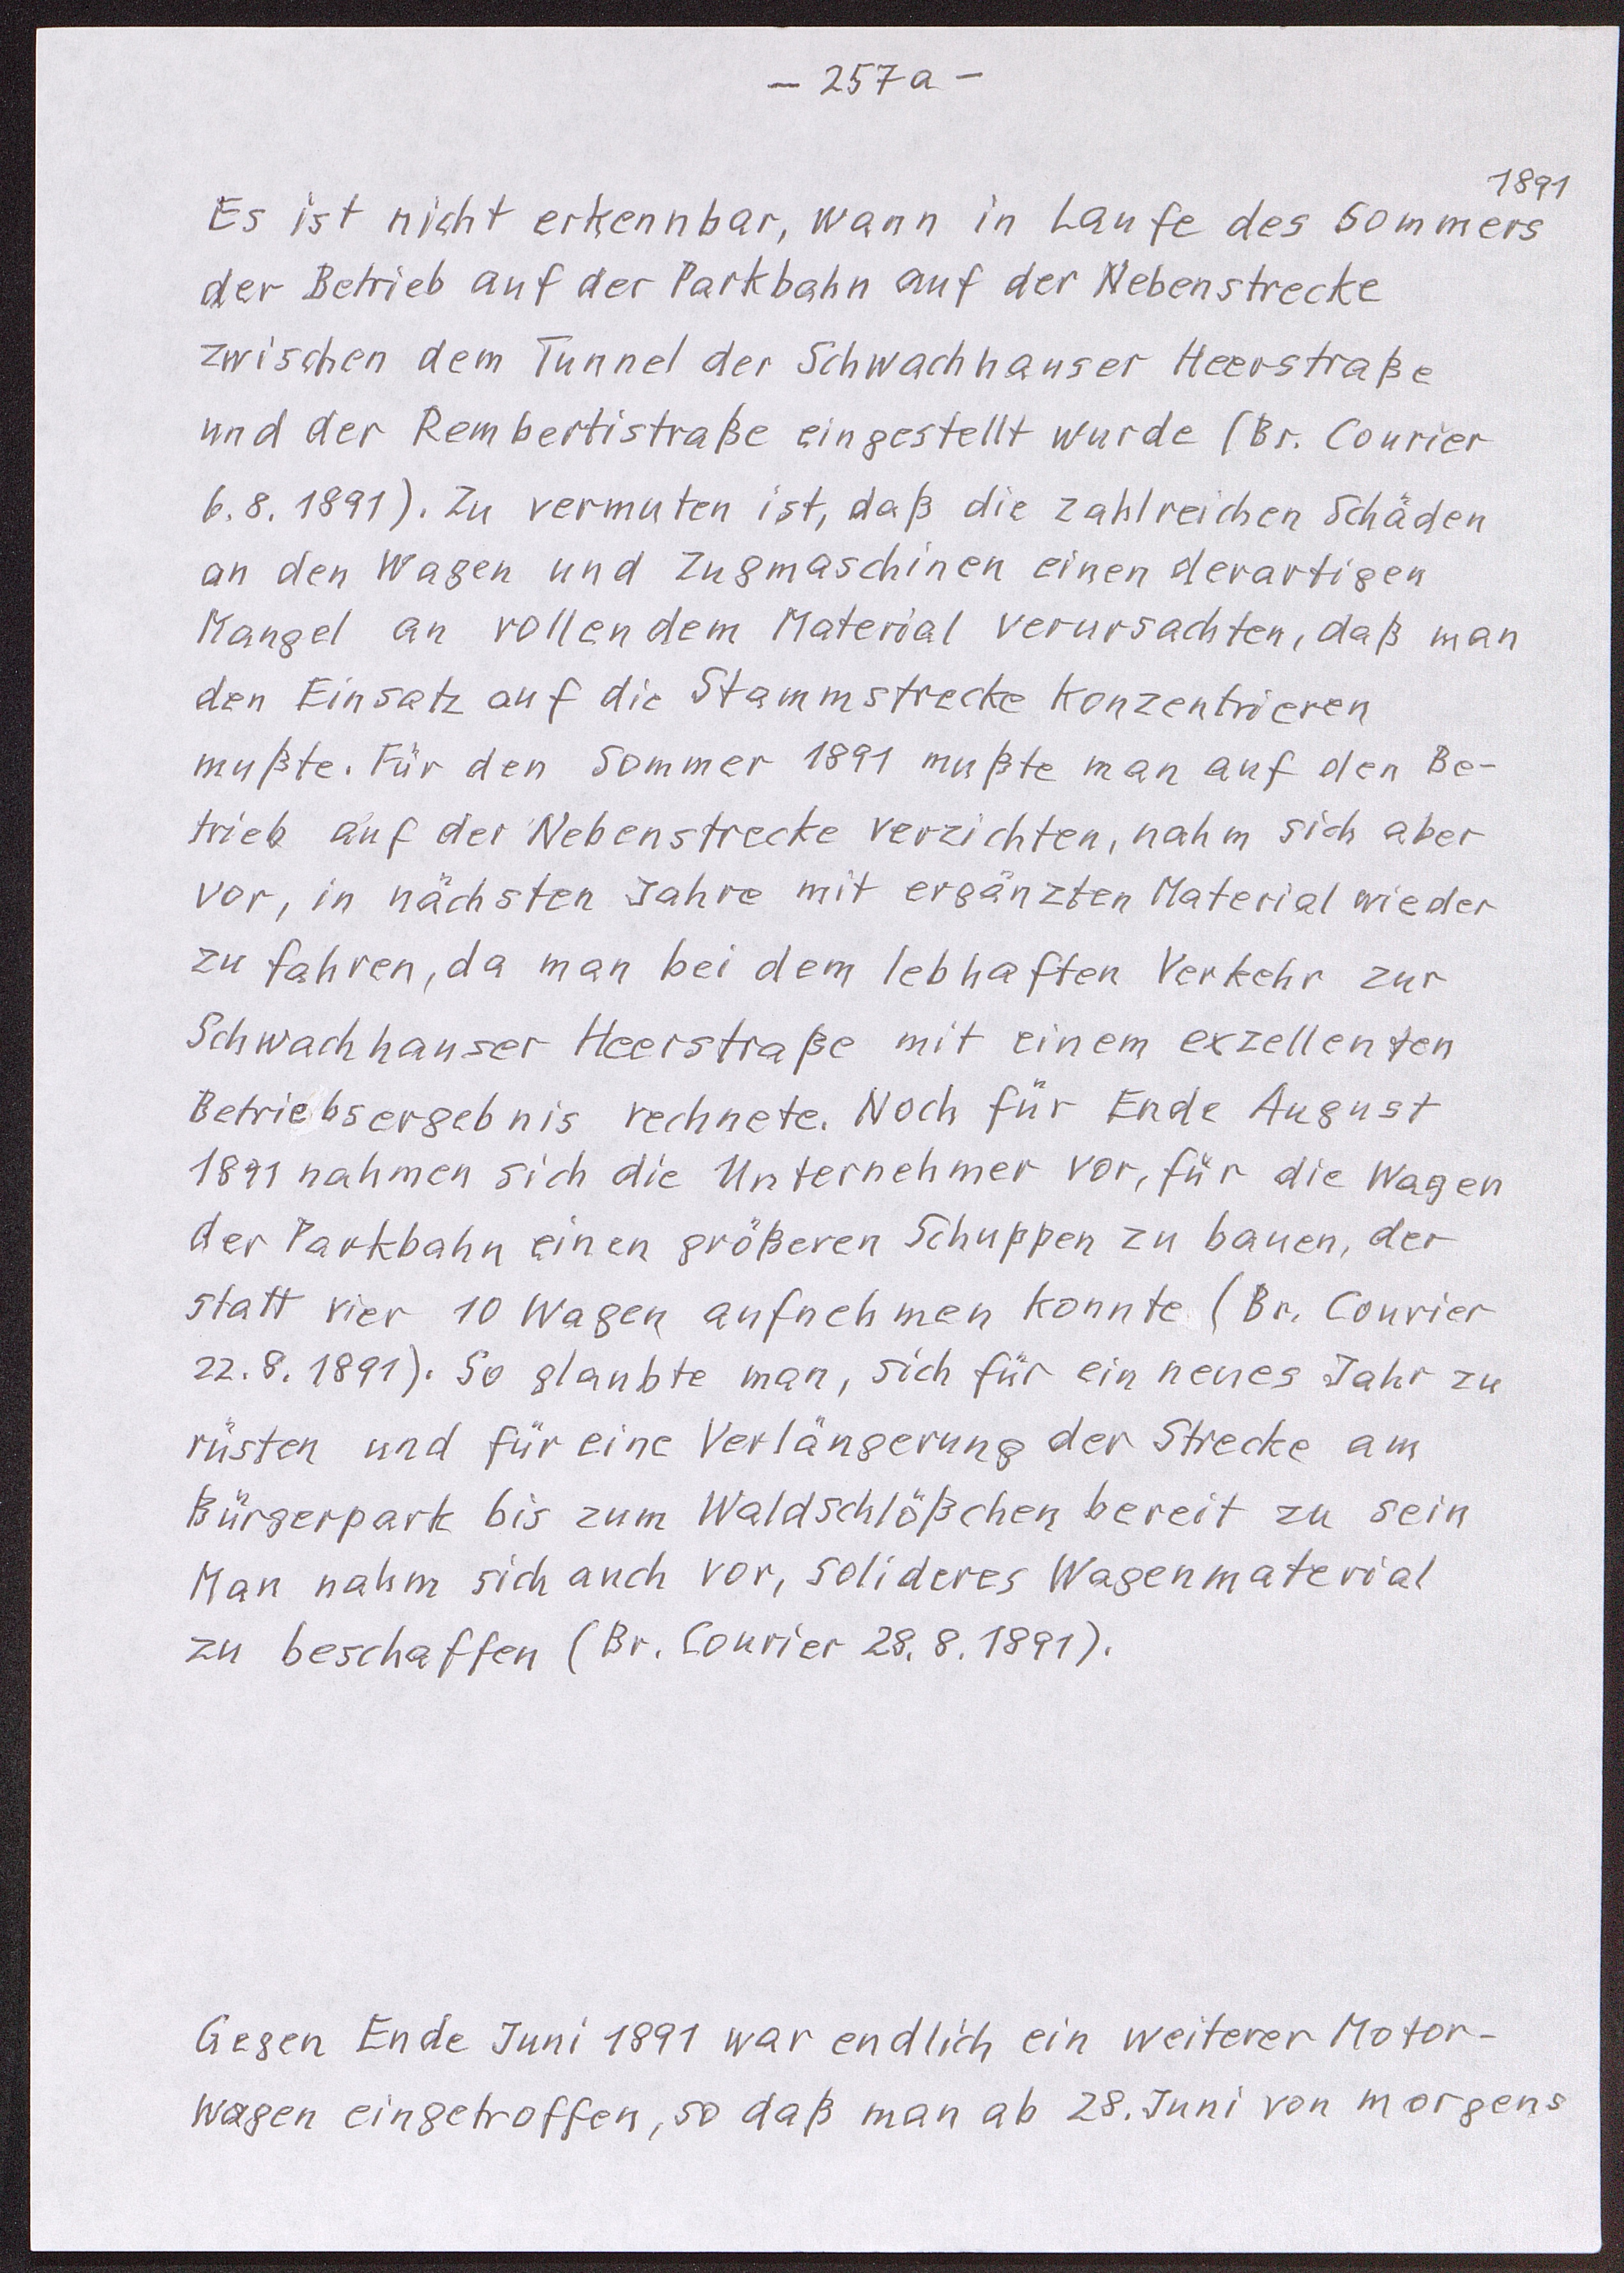 – 257a –
1891
Es ist nicht erkennbar, wann in Laufe des Sommers
der Betrieb auf der Parkbahn auf der Nebenstrecke
zwischen dem Tunnel der Schwachhauser Heerstraße
und der Rembertistraße eingestellt wurde (Br. Courier
6.8.1891). Zu vermuten ist, daß die zahlreichen Schäden
an den Wagen und Zugmaschinen einen derartigen
Mangel an rollendem Material verursachten, daß man
den Einsatz auf die Stammstrecke konzentrieren
mußte. Für den Sommer 1891 mußte man auf den Be-
trieb auf der Nebenstrecke verzichten, nahm sich aber
vor, in nächsten Jahre mit ergänzten Material wieder
zu fahren, da man bei dem lebhaften Verkehr zur
Schwachhauser Heerstraße mit einem exzellenten
Betriebsergebnis rechnete. Noch für Ende August
1891 nahmen sich die Unternehmer vor, für die Wagen
der Parkbahn einen größeren Schuppen zu bauen, der
statt vier 10 Wagen aufnehmen konnte (Br. Courier
22.8.1891). So glaubte man, sich für ein neues Jahr zu
rüsten und für eine Verlängerung der Strecke am
Bürgerpark bis zum Waldschlößchen bereit zu sein
Man nahm sich auch vor, solideres Wagenmaterial
zu beschaffen (Br. Courier 28.8.1891).
Gegen Ende Juni 1891 war endlich ein weiterer Motor-
wagen eingetroffen, so daß man ab 28. Juni von morgens